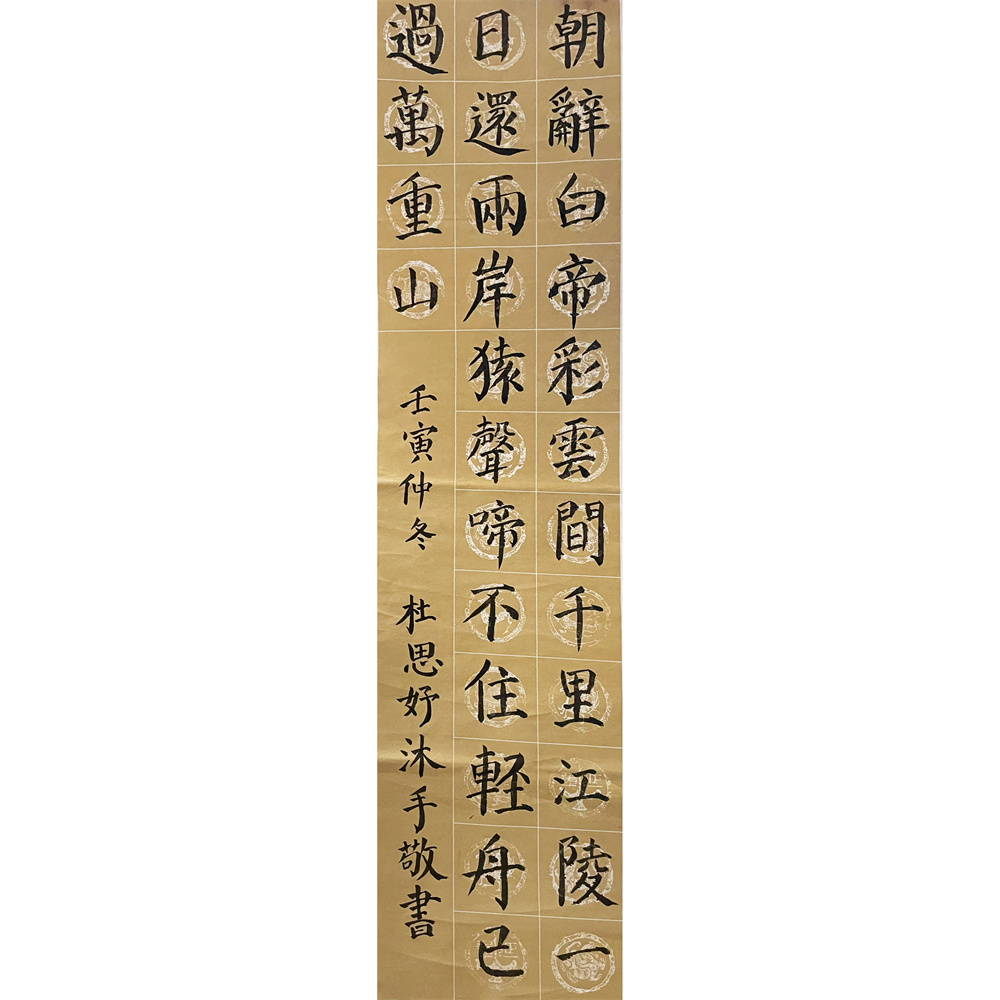 朝辭白帝彩雲間千里江陵一
日還兩岸猿聲啼不住輕舟已
過萬重山
壬寅仲冬 杜思妤沐手敬書